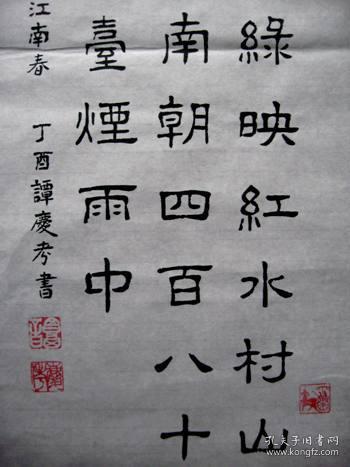 綠映紅水村山
南朝四百八十
臺煙雨中
江南春 丁酉譚慶考書
孔夫子旧书网
www.kongfz.com